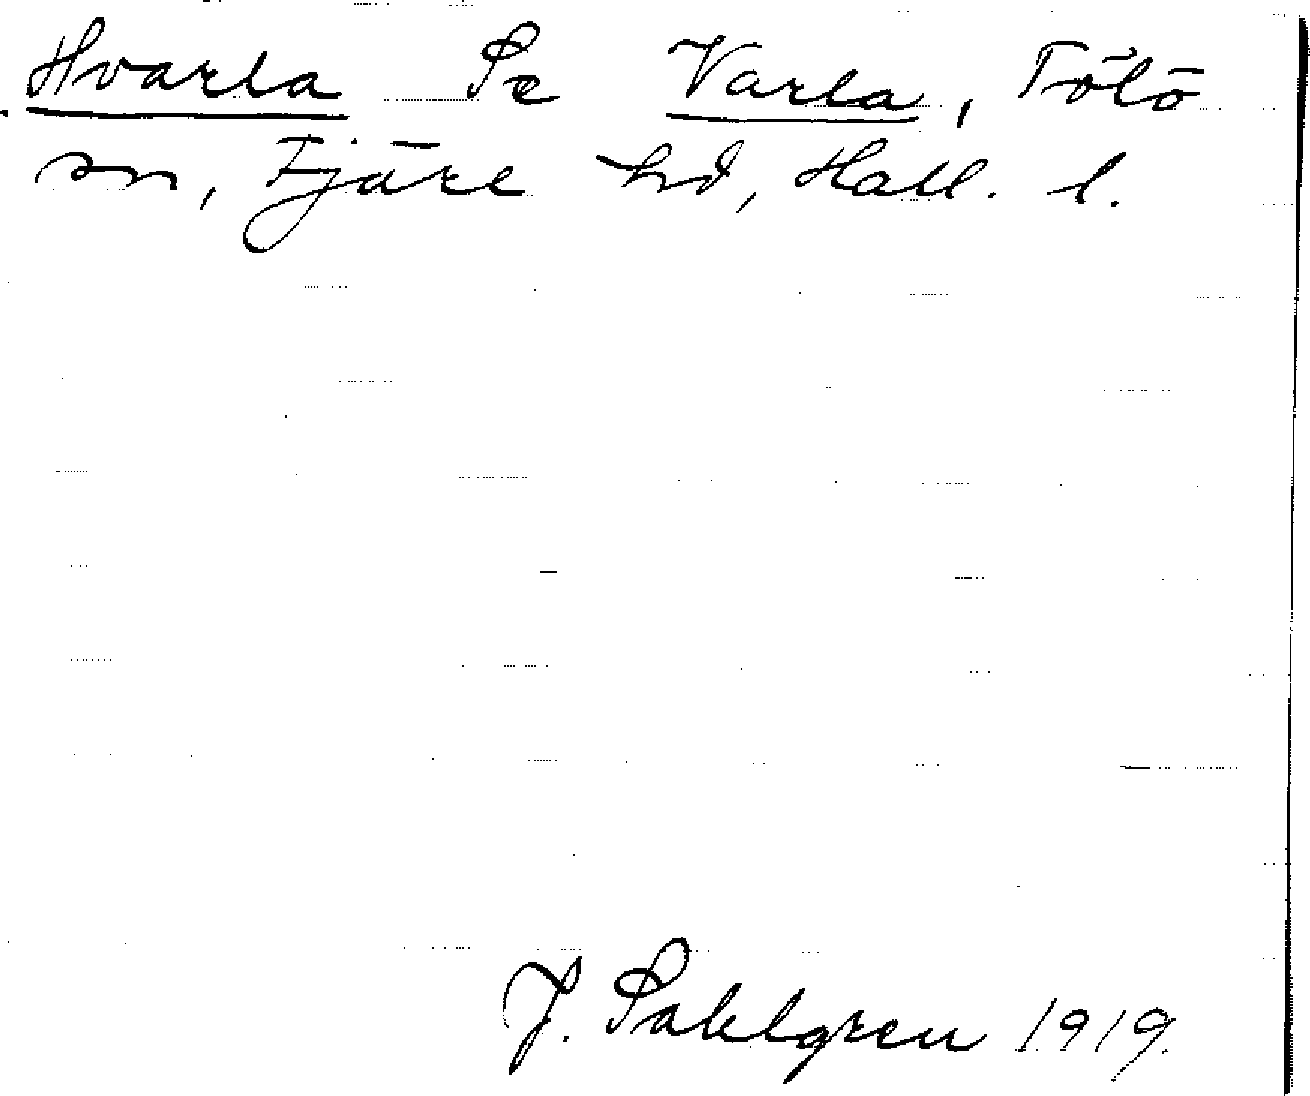 Hvarla Se Varla, Tölö
sn, Fjäre hd, Hall. l.
J. Sahlgren 1919.